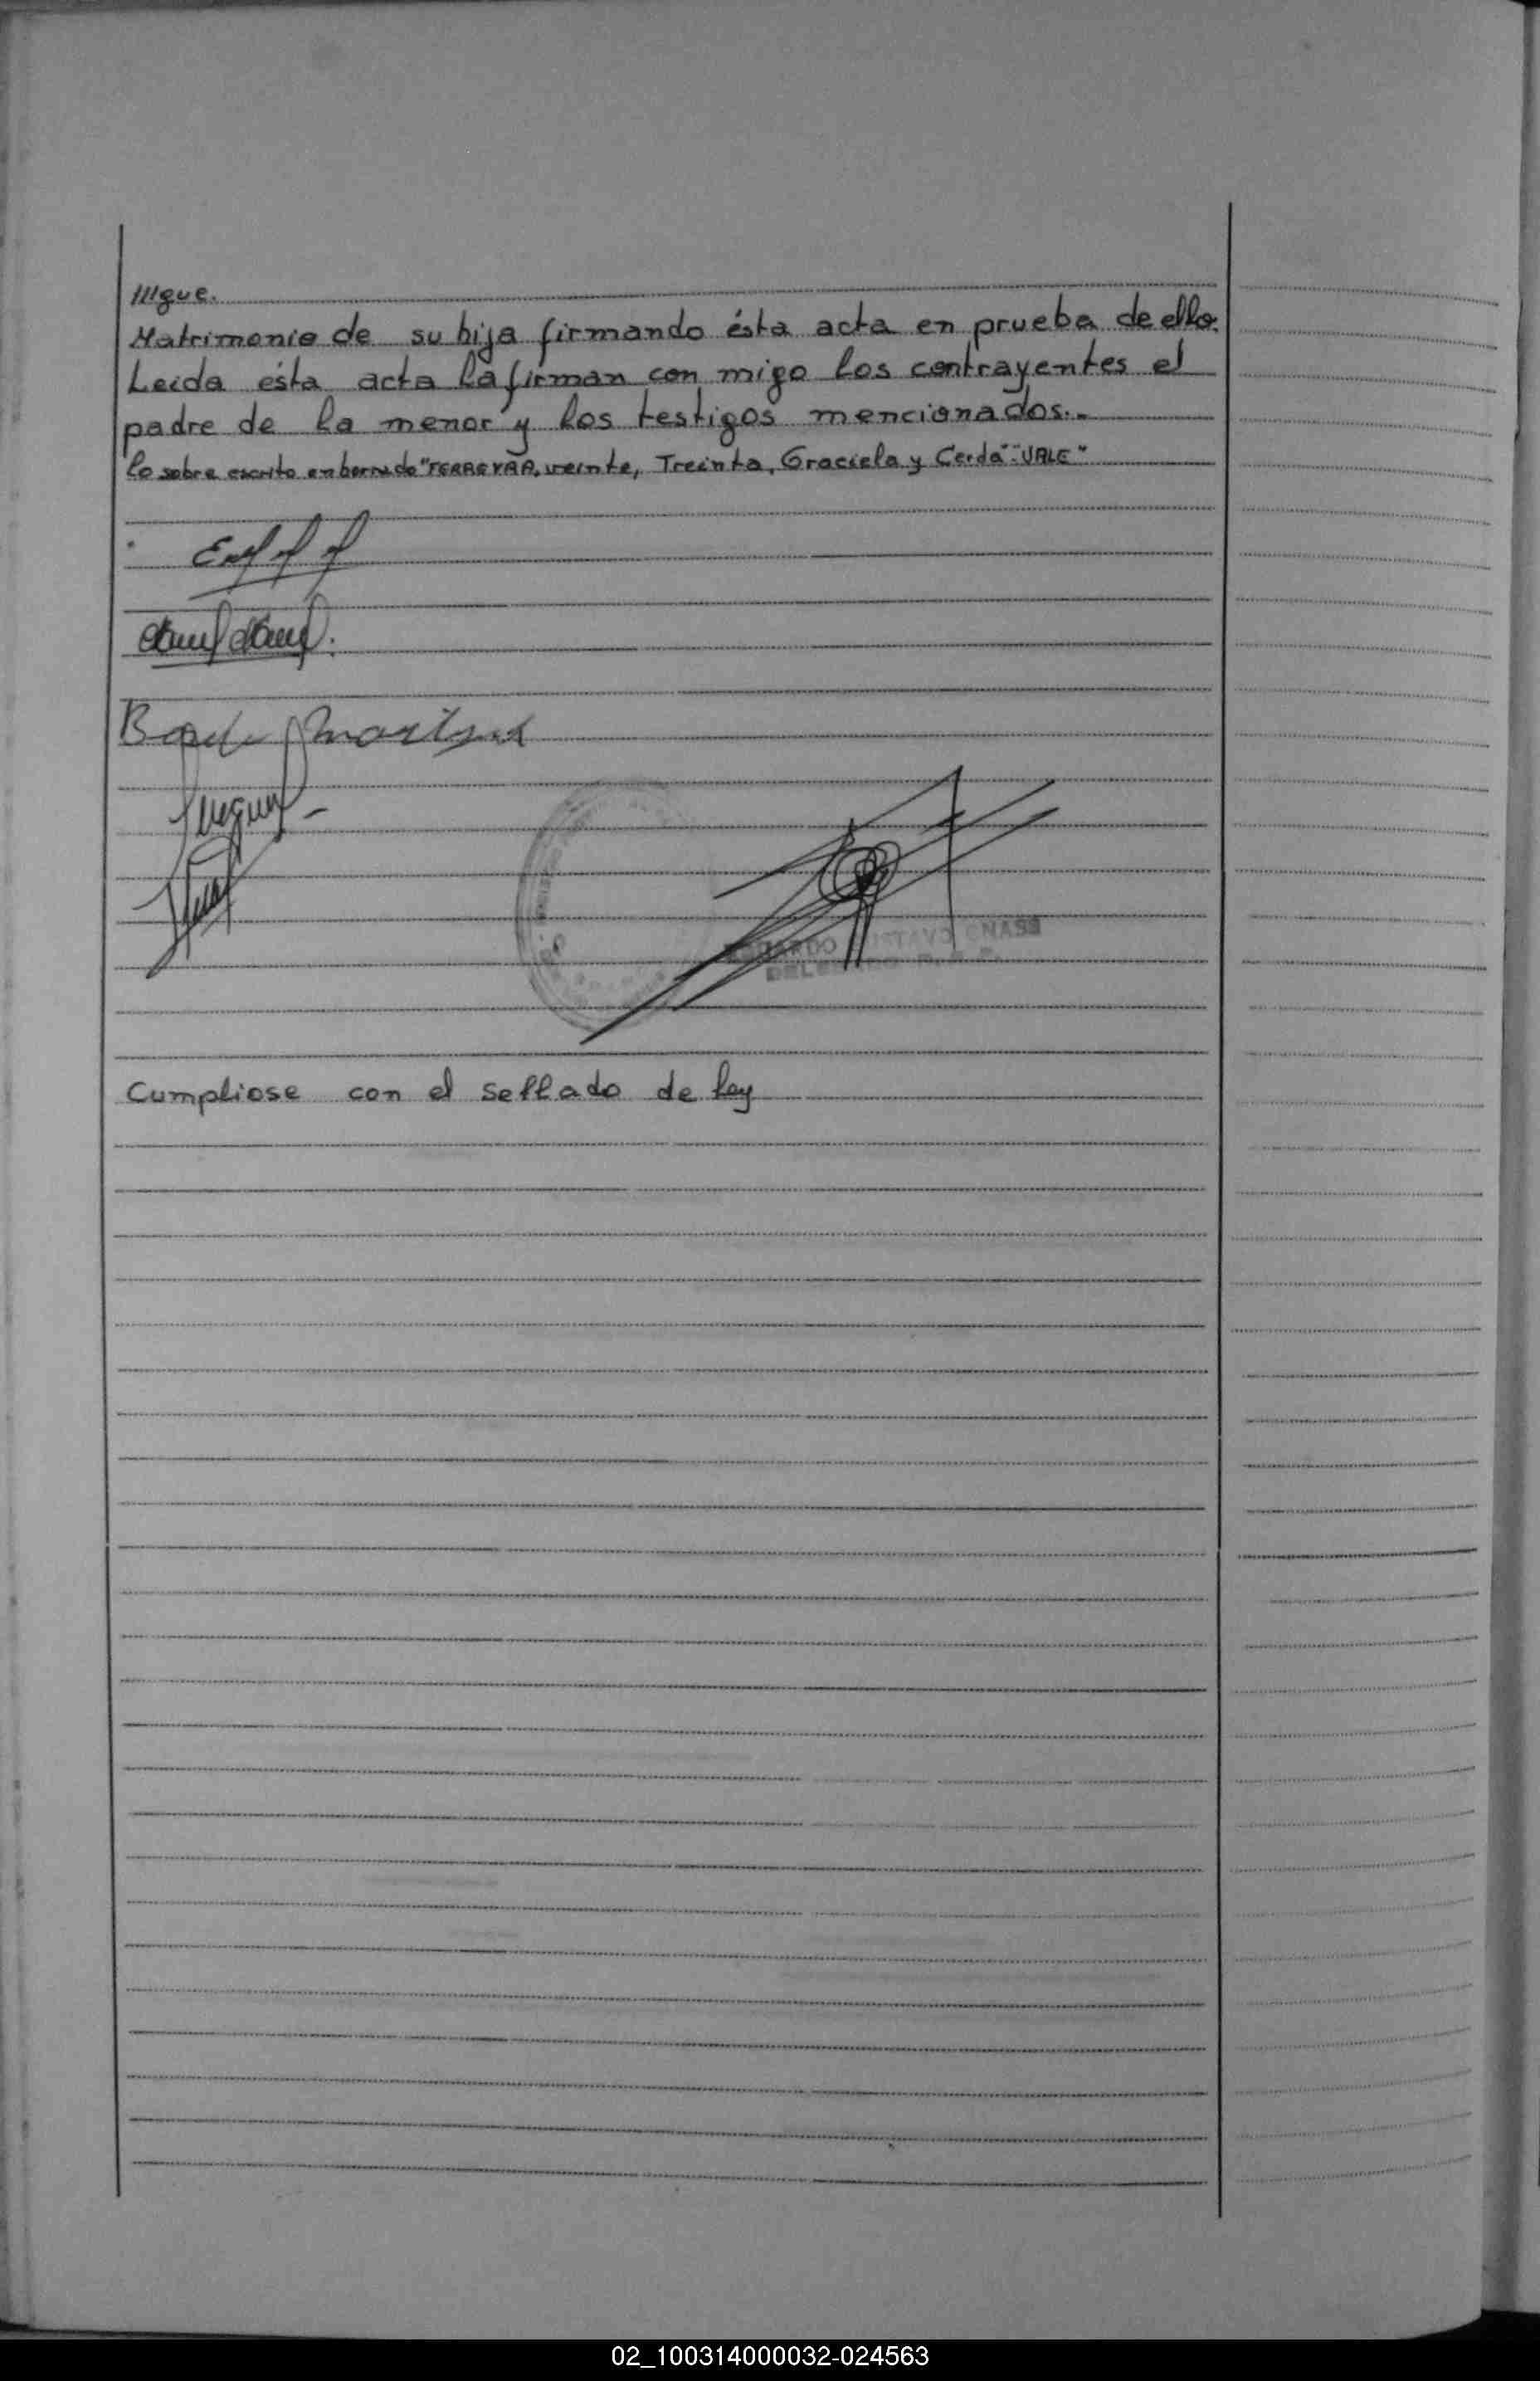 ///gue.
Matrimonio de su hija firmando ésta acta en prueba de ello.
Leida ésta acta la firman con migo los contrayentes el
padre de la menor y los testigos mencionados.-
lo sobre escrito en borrado "FERREYRA, veinte, Treinta, Graciela y Cerda" "VALE"
GUSTAVO
Cumpliose con el sellado de ley
02_100314000032-024563